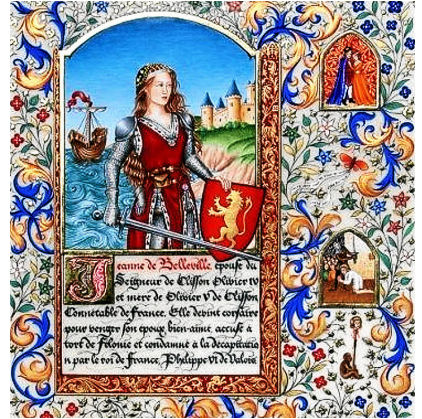 Jeanne de Belleville épouse du
Seigneur de Clisson Olivier IV
et mère de Olivier V de Clisson
Connétable de France. Elle devint corsaire
pour venger son époux bien-aimé accusé à
tort de félonie et condamné à la décapitatio
n par le roi de France, Philippe VI de Valois